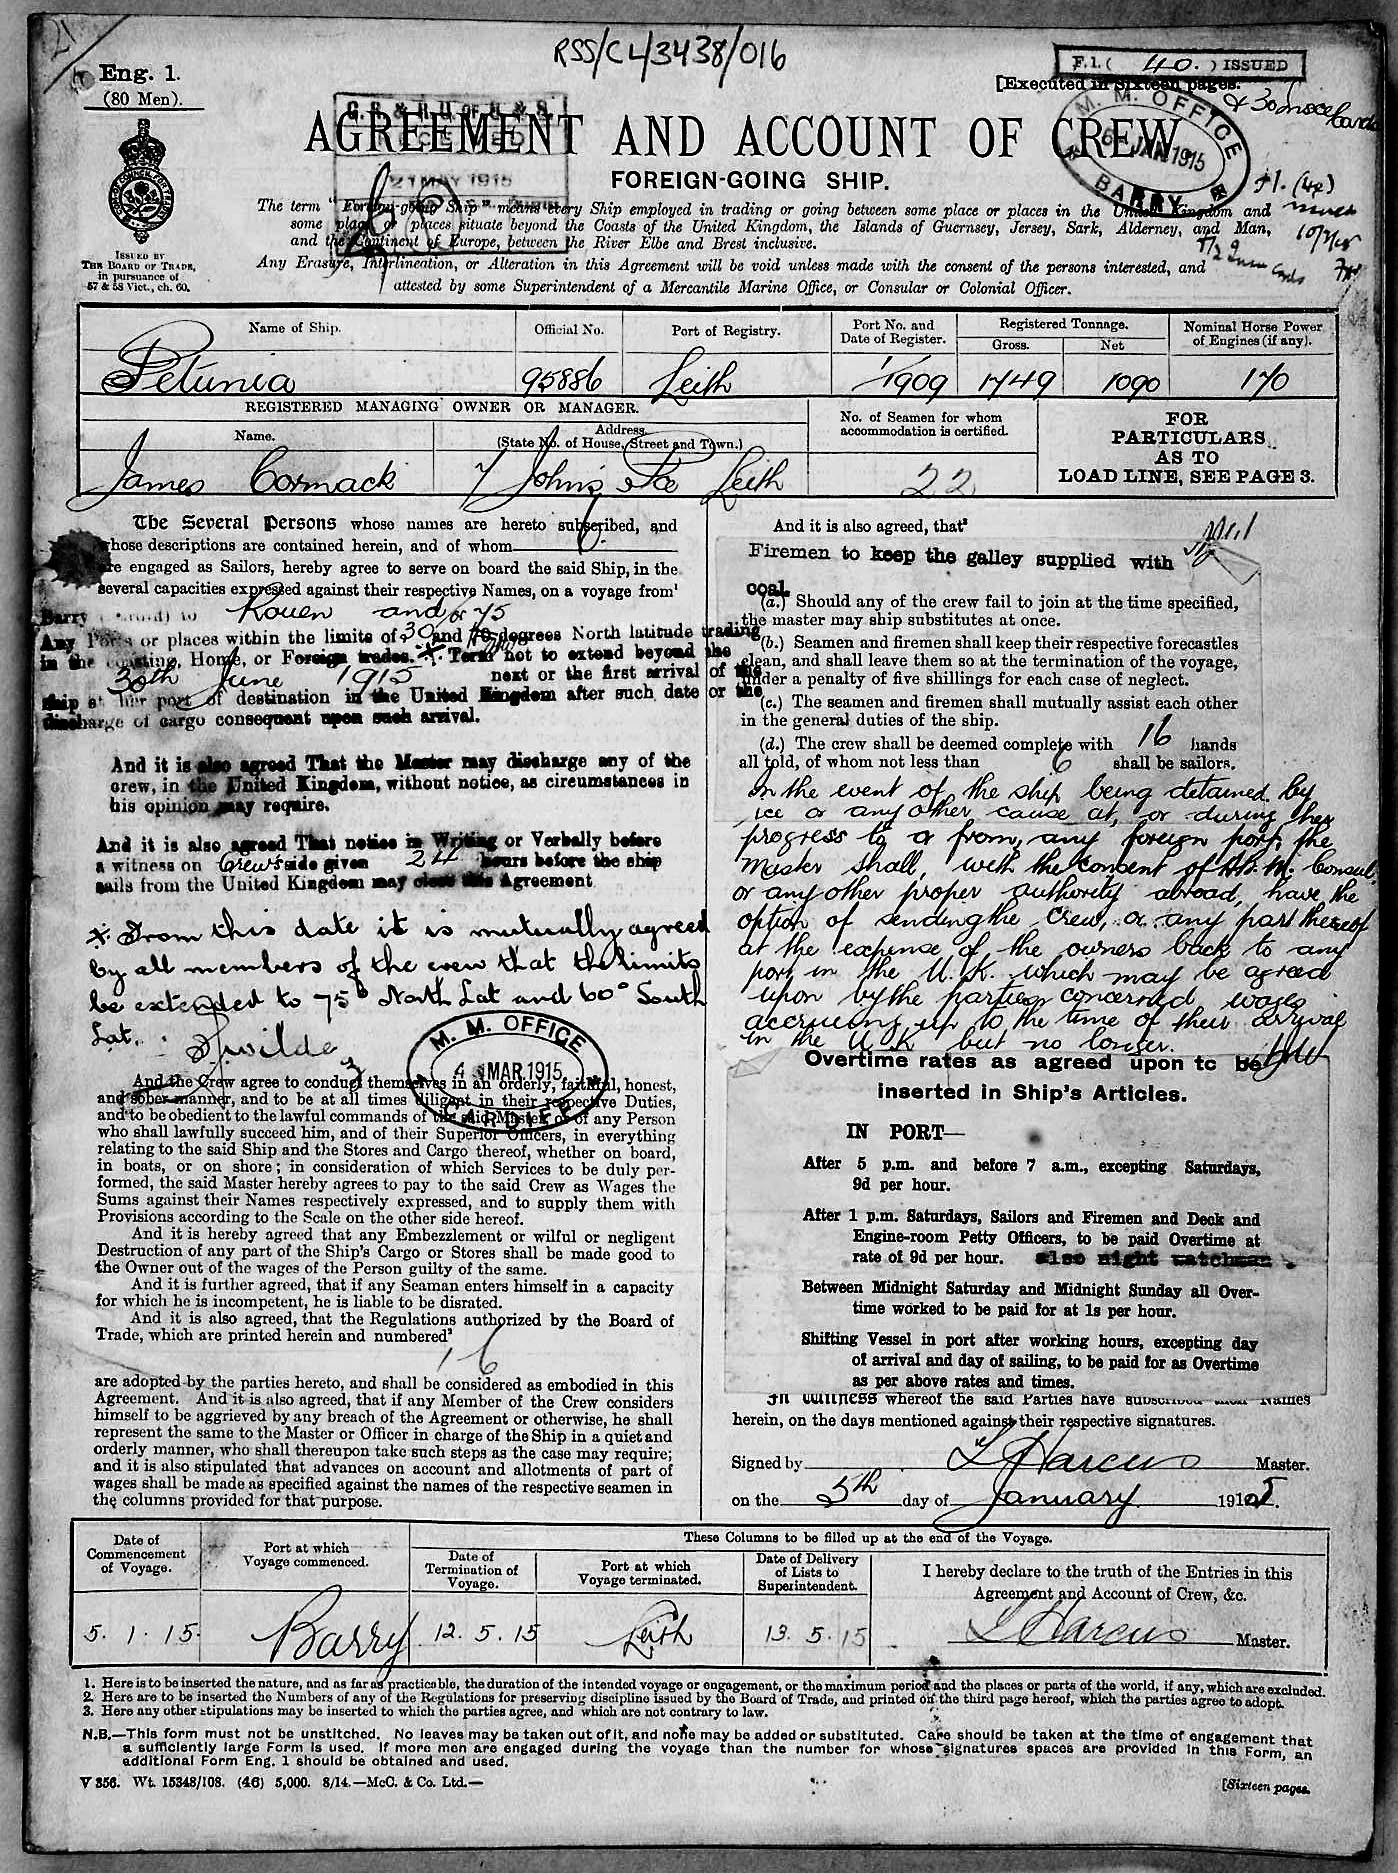 21
RSS/CL/3438/016
Eng. 1.
(80 Men).
F.1. ( 40. ) ISSUED
[Executed in Sixteen pages.
& 30 more Cards
M. M. OFFICE
6 JAN 1915
BARRY
G.R. & R.U. OF S. & S.
RECEIVED
21 MAY 1915
AGREEMENT AND ACCOUNT OF CREW
FOREIGN-GOING SHIP.
ISSUED BY
THE BOARD OF TRADE,
in pursuance of
57 & 58 Vict., ch. 60.
The term "Foreign-going Ship" means every Ship employed in trading or going between some place or places in the United Kingdom and
some place or places situate beyond the Coasts of the United Kingdom, the Islands of Guernsey, Jersey, Sark, Alderney, and Man,
and the Continent of Europe, between the River Elbe and Brest inclusive.
Any Erasure, Interlineation, or Alteration in this Agreement will be void unless made with the consent of the persons interested, and
attested by some Superintendent of a Mercantile Marine Office, or Consular or Colonial Officer.
Name of Ship. Official No. Port of Registry. Port No. and Date of Register. Registered Tonnage. Gross. Net Nominal Horse Power of Engines (if any).
Petunia 95886 Leith 1/1909 1749 1090 170
REGISTERED MANAGING OWNER OR MANAGER.
Name. Address. (State No. of House, Street and Town.)
No. of Seamen for whom accommodation is certified.
James Cormack 7 John's Place Leith 22
FOR
PARTICULARS
AS TO
LOAD LINE, SEE PAGE 3.
The Several Persons whose names are hereto subscribed, and
whose descriptions are contained herein, and of whom 6
are engaged as Sailors, hereby agree to serve on board the said Ship, in the
several capacities expressed against their respective Names, on a voyage from¹
Barry to Rouen and/or 75
Any Ports or places within the limits of 30 and 70 degrees North latitude trading
in the coasting, Home, or Foreign trades. * Term not to extend beyond the
30th June 1915 next or the first arrival of the
ship at her port of destination in the United Kingdom after such date or the
discharge of cargo consequent upon such arrival.
And it is also agreed That the Master may discharge any of the
crew, in the United Kingdom, without notice, as circumstances in
his opinion may require.
And it is also agreed That notice in Writing or Verbally before
a witness on Crew's side given 24 hours before the ship
sails from the United Kingdom may close this Agreement
* From this date it is mutually agreed
by all members of the crew that the limits
be extended to 75° North Lat and 60° South
Lat.
M. M. OFFICE
4 MAR 1915
CARDIFF
And the Crew agree to conduct themselves in an orderly, faithful, honest,
and sober manner, and to be at all times diligent in their respective Duties,
and to be obedient to the lawful commands of the said Master or of any Person
who shall lawfully succeed him, and of their Superior Officers, in everything
relating to the said Ship and the Stores and Cargo thereof, whether on board,
in boats, or on shore; in consideration of which Services to be duly per-
formed, the said Master hereby agrees to pay to the said Crew as Wages the
Sums against their Names respectively expressed, and to supply them with
Provisions according to the Scale on the other side hereof.
And it is hereby agreed that any Embezzlement or wilful or negligent
Destruction of any part of the Ship's Cargo or Stores shall be made good to
the Owner out of the wages of the Person guilty of the same.
And it is further agreed, that if any Seaman enters himself in a capacity
for which he is incompetent, he is liable to be disrated.
And it is also agreed, that the Regulations authorized by the Board of
Trade, which are printed herein and numbered²
1, 6
are adopted by the parties hereto, and shall be considered as embodied in this
Agreement. And it is also agreed, that if any Member of the Crew considers
himself to be aggrieved by any breach of the Agreement or otherwise, he shall
represent the same to the Master or Officer in charge of the Ship in a quiet and
orderly manner, who shall thereupon take such steps as the case may require;
and it is also stipulated that advances on account and allotments of part of
wages shall be made as specified against the names of the respective seamen in
the columns provided for that purpose.
And it is also agreed, that³
Firemen to keep the galley supplied with
coal.
(a.) Should any of the crew fail to join at the time specified,
the master may ship substitutes at once.
(b.) Seamen and firemen shall keep their respective forecastles
clean, and shall leave them so at the termination of the voyage,
under a penalty of five shillings for each case of neglect.
(c.) The seamen and firemen shall mutually assist each other
in the general duties of the ship.
(d.) The crew shall be deemed complete with 16 hands
all told, of whom not less than 6 shall be sailors.
In the event of the ship being detained by
ice or any other cause at, or during her
progress to or from, any foreign port, the
Master shall, with the consent of H.M. Consul,
or any other proper authority abroad, have the
option of sending the Crew, or any part thereof
at the expense of the owners back to any
port in the U.K. which may be agreed
upon by the parties concerned, wages
accruing up to the time of their arrival
in the U.K. but no longer.
Overtime rates as agreed upon to be
inserted in Ship's Articles.
IN PORT—
After 5 p.m. and before 7 a.m., excepting Saturdays,
9d per hour.
After 1 p.m. Saturdays, Sailors and Firemen and Deck and
Engine-room Petty Officers, to be paid Overtime at
rate of 9d per hour. also night watchman.
Between Midnight Saturday and Midnight Sunday all Over-
time worked to be paid for at 1s per hour.
Shifting Vessel in port after working hours, excepting day
of arrival and day of sailing, to be paid for as Overtime
as per above rates and times.
In Witness whereof the said Parties have subscribed their Names
herein, on the days mentioned against their respective signatures.
Signed by L Harcus Master.
on the 5th day of January 1915.
Date of Commencement of Voyage. Port at which Voyage commenced. These Columns to be filled up at the end of the Voyage.
Date of Termination of Voyage. Port at which Voyage terminated. Date of Delivery of Lists to Superintendent.
I hereby declare to the truth of the Entries in this
Agreement and Account of Crew, &c.
5. 1. 15. Barry 12. 5. 15 Leith 13. 5. 15 L Harcus Master.
1. Here is to be inserted the nature, and as far as practicable, the duration of the intended voyage or engagement, or the maximum period and the places or parts of the world, if any, which are excluded.
2. Here are to be inserted the Numbers of any of the Regulations for preserving discipline issued by the Board of Trade, and printed on the third page hereof, which the parties agree to adopt.
3. Here any other stipulations may be inserted to which the parties agree, and which are not contrary to law.
N.B.—This form must not be unstitched. No leaves may be taken out of it, and none may be added or substituted. Care should be taken at the time of engagement that
a sufficiently large Form is used. If more men are engaged during the voyage than the number for whose signatures spaces are provided in this Form, an
additional Form Eng. 1 should be obtained and used.
V 356. Wt. 15348/108. (46) 5,000. 8/14.—McC. & Co. Ltd.—
[Sixteen pages.